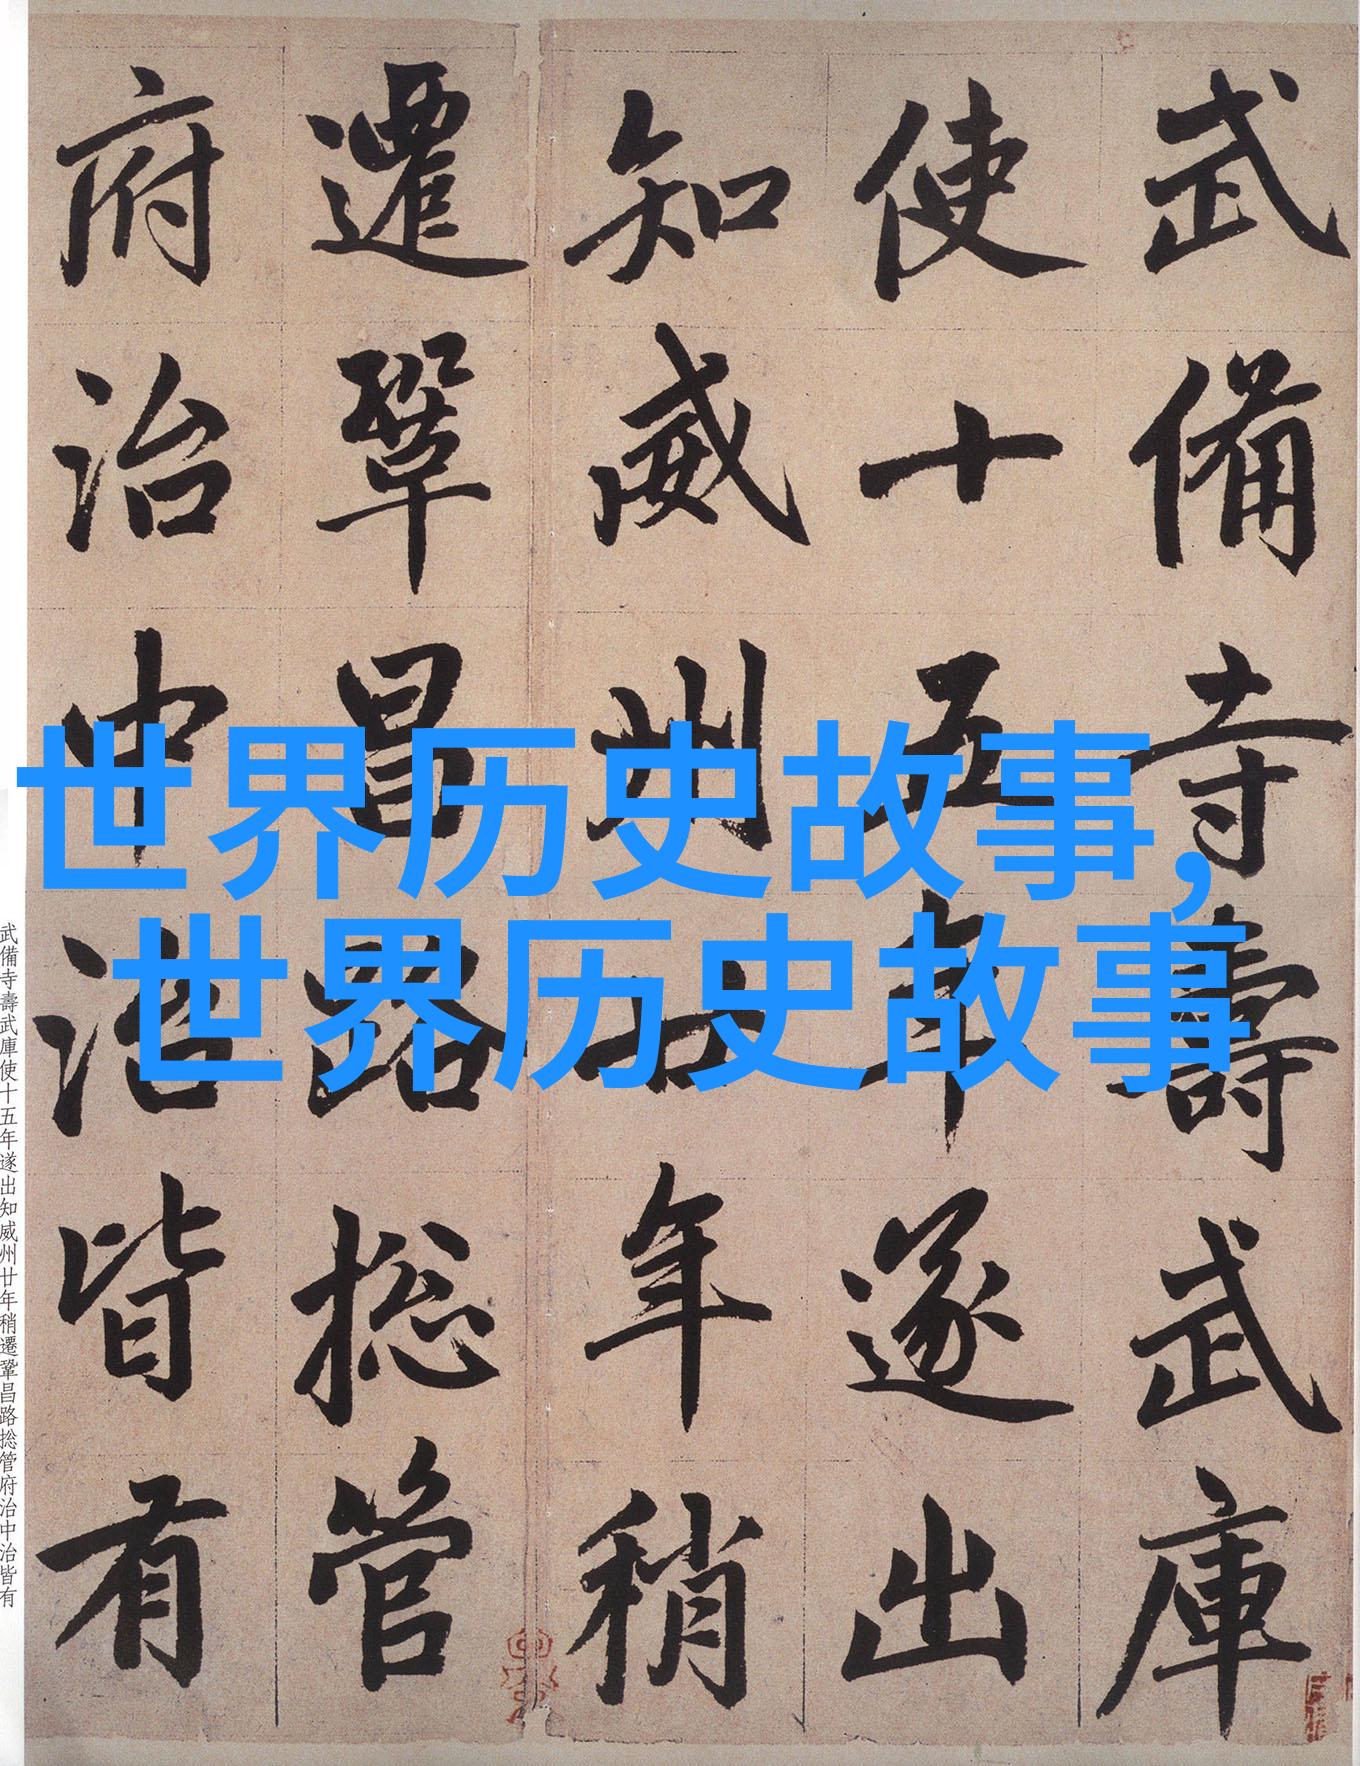 武備寺壽武庫
使十五年遂出
知威州廿年稍
遷鞏昌路捴管
府治中治皆有
世界历史故事,
世界历史故事
武備寺壽武庫使十五年遂出知威州廿年稍遷鞏昌路捴管府治中治皆有